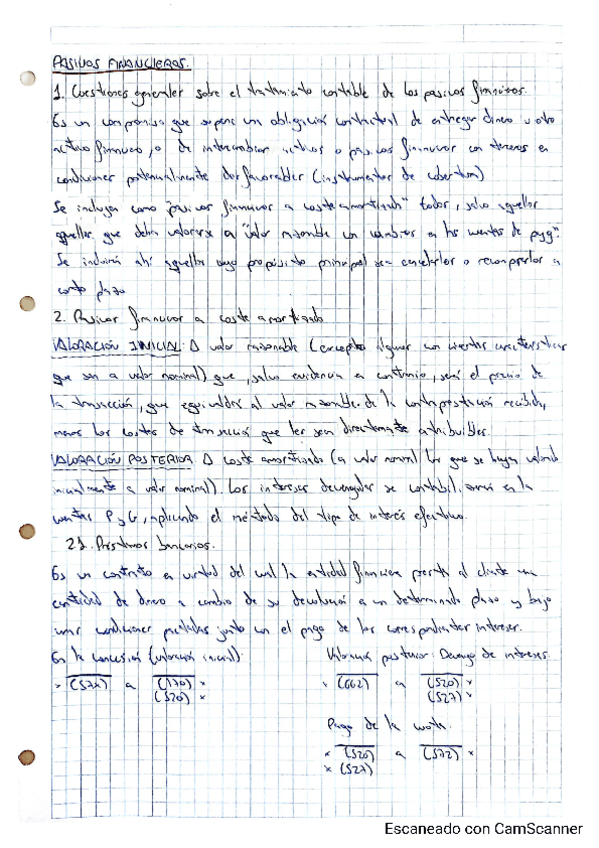 PASIVOS FINANCIEROS.
1. Cuestiones generales sobre el tratamiento contable de los pasivos financieros.
Es un compromiso que supone una obligación contractual de entregar dinero u otro
activo financiero, o de intercambiar activos o pasivos financieros con terceros en
condiciones potencialmente desfavorables (instrumentos de cobertura)
Se incluyen como "pasivos financieros a coste amortizado" todos, salvo aquellos
aquellos que deban valorarse a "valor razonable con cambios en las cuentas de pyg"
Se incluirá ahí aquellos cuyo propósito principal sea cancelarlos o recomprarlos a
corto plazo
2. Pasivos financieros a coste amortizado
VALORACIÓN INICIAL: A valor razonable (excepto algunos con ciertas características
que son a valor nominal) que, salvo evidencia en contrario, será el precio de
la transacción, que equivaldrá al valor razonable de la contraprestación recibida,
menos los costes de transacción que les sean directamente atribuibles.
VALORACIÓN POSTERIOR A coste amortizado (a valor nominal los que se hayan valorado
inicialmente a valor nominal). Los intereses devengados se contabilizarán en la
cuentas P y G, aplicando el método del tipo de interés efectivo.
2.1. Préstamos bancarios.
Es un contrato en virtud del cual la entidad financiera presta al cliente una
cantidad de dinero a cambio de su devolución en un determinado plazo y bajo
unas condiciones pactadas junto con el pago de los correspondientes intereses.
En la concesión (valoración inicial):
x (572) a (170) x
(520) x
Valoración posterior: Devengo de intereses.
x (662) a (520) x
(527) x
Pago de la cuota.
x (520) a (572) x
x (527)
Escaneado con CamScanner